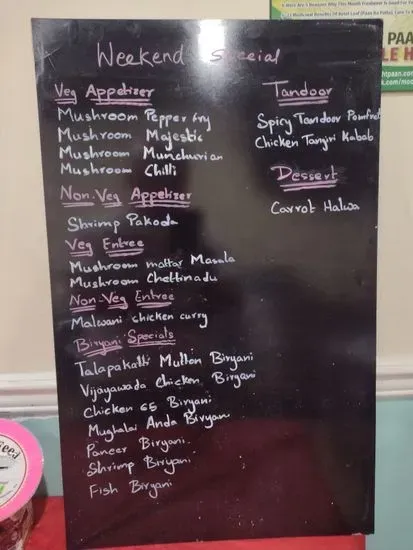 Weekend Special
Veg Appetizer
Mushroom Pepper fry
Mushroom Majestic
Mushroom Munchurian
Mushroom Chilli
Non-Veg Appetizer
Shrimp Pakoda
Veg Entree
Mushroom mattar Masala
Mushroom Chettinadu
Non-Veg Entree
Malwani chicken curry
Biryani Specials
Talapakatti Mutton Biryani
Vijayawada Chicken Biryani
Chicken 65 Biryani
Mughalai Anda Biryani
Paneer Biryani
Shrimp Biryani
Fish Biryani
Tandoor
Spicy Tandoor Pomfret
Chicken Tangri Kabab
Dessert
Carrot Halwa
PAA
LE H
htpaan.com
k.com/moo